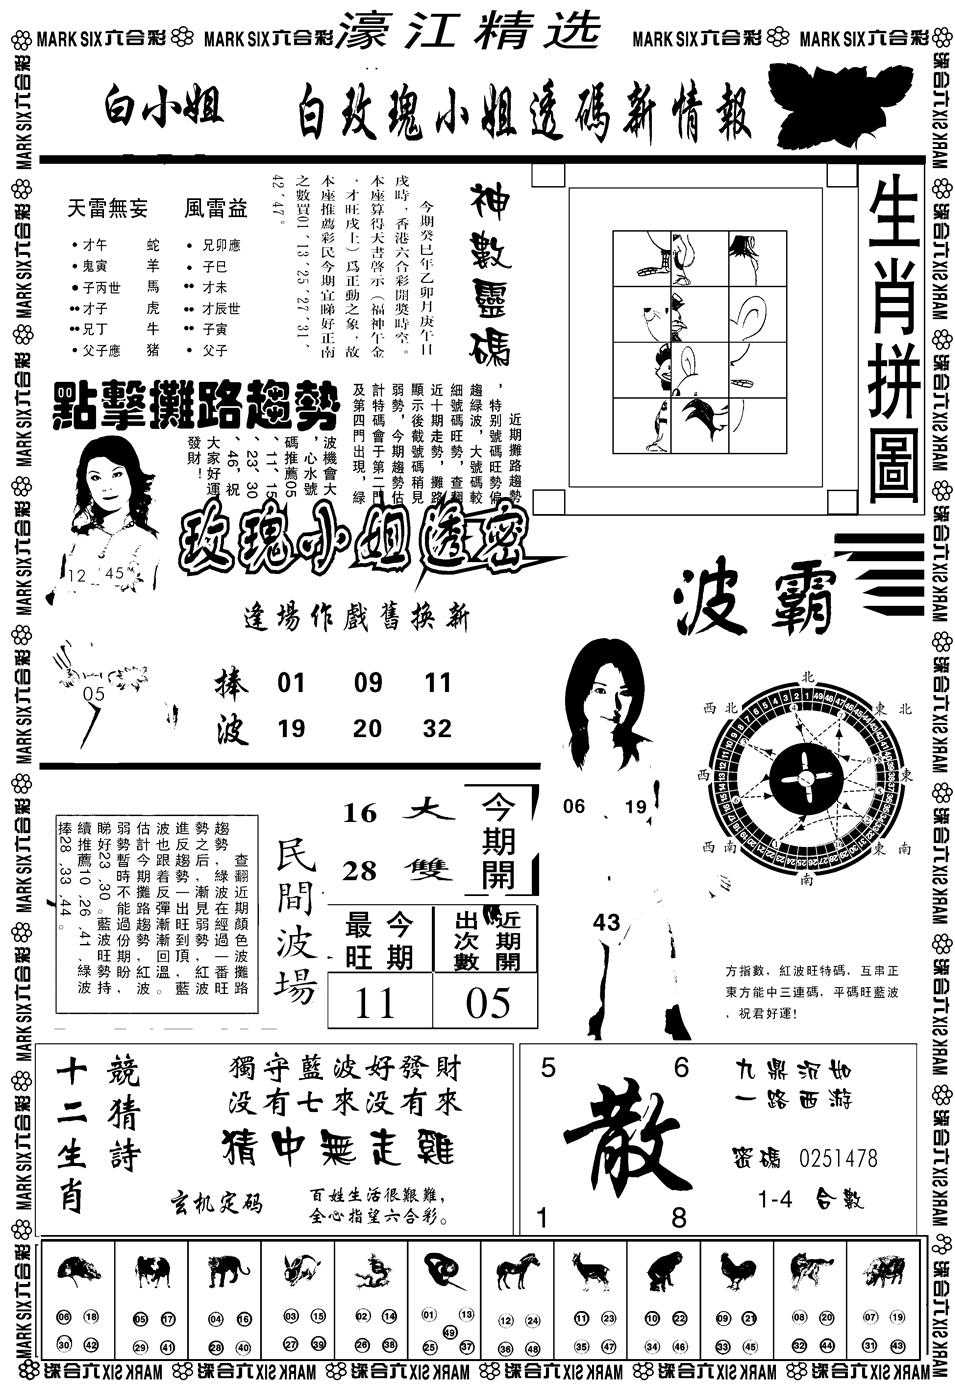 MARK SIX六合彩 MARK SIX六合彩 濠江精选 MARK SIX六合彩 MARK SIX六合彩
白小姐 白玫瑰小姐透碼新情報
天雷無妄 風雷益
·才午 蛇 ·兄卯應
·鬼寅 羊 ·子巳
●子丙世 馬 ··才未
··才子 虎 ··才辰世
··兄丁 牛 ··子寅
·父子應 猪 ·父子
神數靈碼
今期癸巳年乙卯月庚午日
戌時，香港六合彩開獎時空。
本座算得天書啓示（福神午金
，才旺戌土）爲正動之象，故
本座推薦彩民今期宜睇好正南
之數買01、13、25、27、31、
42、47。
生肖拼圖
點擊攤路趨勢
近期攤路趨勢
，特别號碼旺勢偏
趨綠波，大號碼較
細號碼旺勢，查翻
近十期走勢，攤路
顯示後截號碼稍見
弱勢，今期趨勢估
計特碼會于第二門
及第四門出現，綠
波機會大
，心水號
碼推薦05
、11、15
、23、30
、46，祝
大家好運
發財！
12 45
05
玫瑰小姐透密
逢場作戲舊換新
捧 01 09 11
波 19 20 32
波霸
06 19
43
北
西北 東北
西 東
西南 東南
南
方指數，紅波旺特碼，互串正
東方能中三連碼，平碼旺藍波
，祝君好運！
查翻近期顏色波攤路
趨勢，綠波在經過一番旺
勢之后，漸見弱勢，紅波
進反趨勢一出旺到頂，藍
波也跟着反彈漸漸回溫。
估計今期攤路趨勢紅波
弱勢暫時不能過份期盼，
睇好23、30。藍波旺勢持
續推薦10、26、41，綠波
捧28、33、44。
民間波場
16 大
28 雙
今期開
今期最旺
近期開出次數
11 05
競猜詩
十二生肖
獨守藍波好發財
没有七來没有來
猜中無走雞
玄机定码
百姓生活很艱難，
全心指望六合彩。
5 6
散
1 8
九鼎沉如
一路西游
密碼 0251478
1-4 合數
06 18 05 17 04 16 03 15 02 14 01 13 12 24 11 23 10 22 09 21 08 20 07 19
49
30 42 29 41 28 40 27 39 26 38 25 37 36 48 35 47 34 46 33 45 32 44 31 43
MARK SIX六合彩 MARK SIX六合彩 MARK SIX六合彩 MARK SIX六合彩 MARK SIX六合彩 MARK SIX六合彩